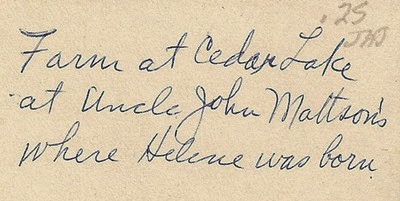 .25
Farm at Cedar Lake
at Uncle John Mattson's
where Helene was born